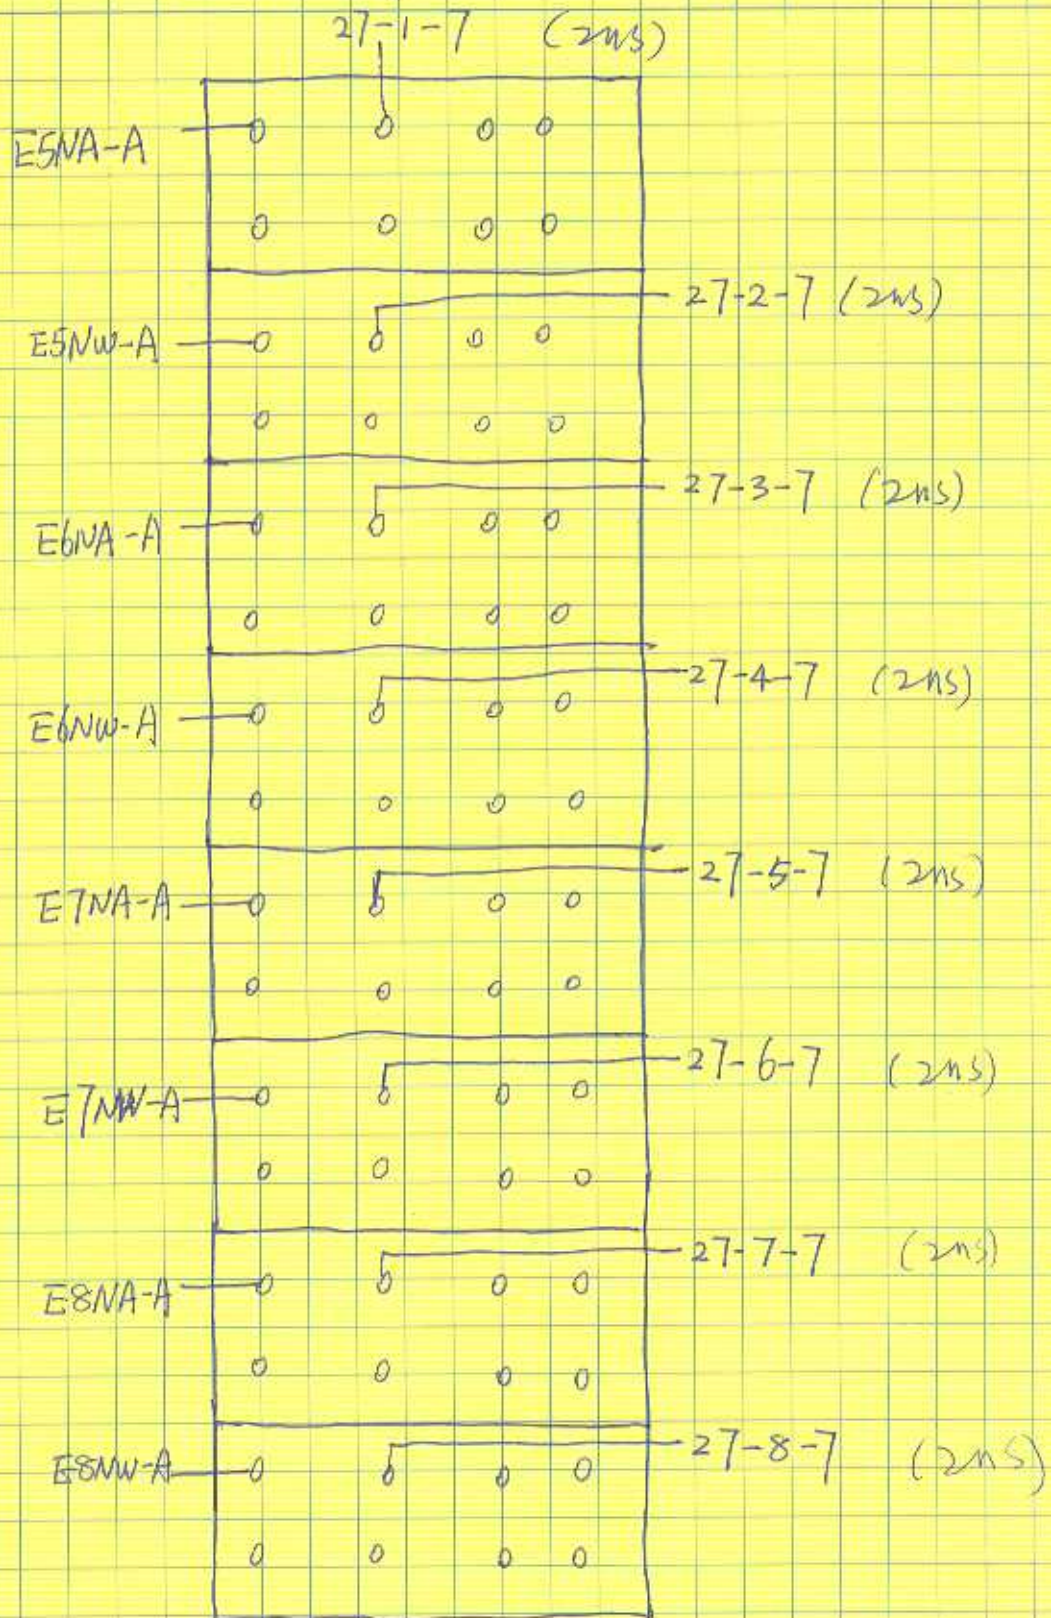 27-1-7 (2ns)
E5NA-A
27-2-7 (2ns)
E5NW-A
27-3-7 (2ns)
E6NA-A
27-4-7 (2ns)
E6NW-A
27-5-7 (2ns)
E7NA-A
27-6-7 (2ns)
E7NW-A
27-7-7 (2ns)
E8NA-A
27-8-7 (2ns)
E8NW-A